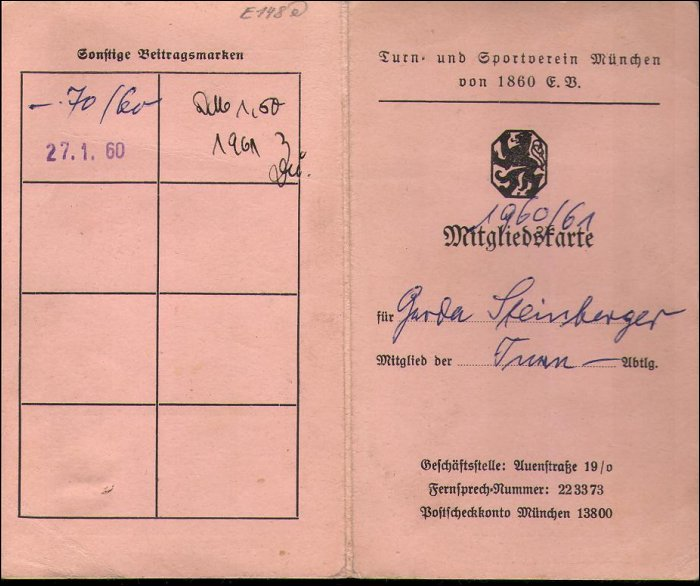 E 148 e
Sonstige Beitragsmarken
-.70/60
27. 1. 60
1,60
1961
Turn- und Sportverein München
von 1860 E. V.
1960/61
Mitgliedskarte
für Gerda Steinberger
Mitglied der Turn – Abtlg.
Geschäftsstelle: Auenstraße 19/0
Fernsprech-Nummer: 22 33 73
Postscheckkonto München 13800